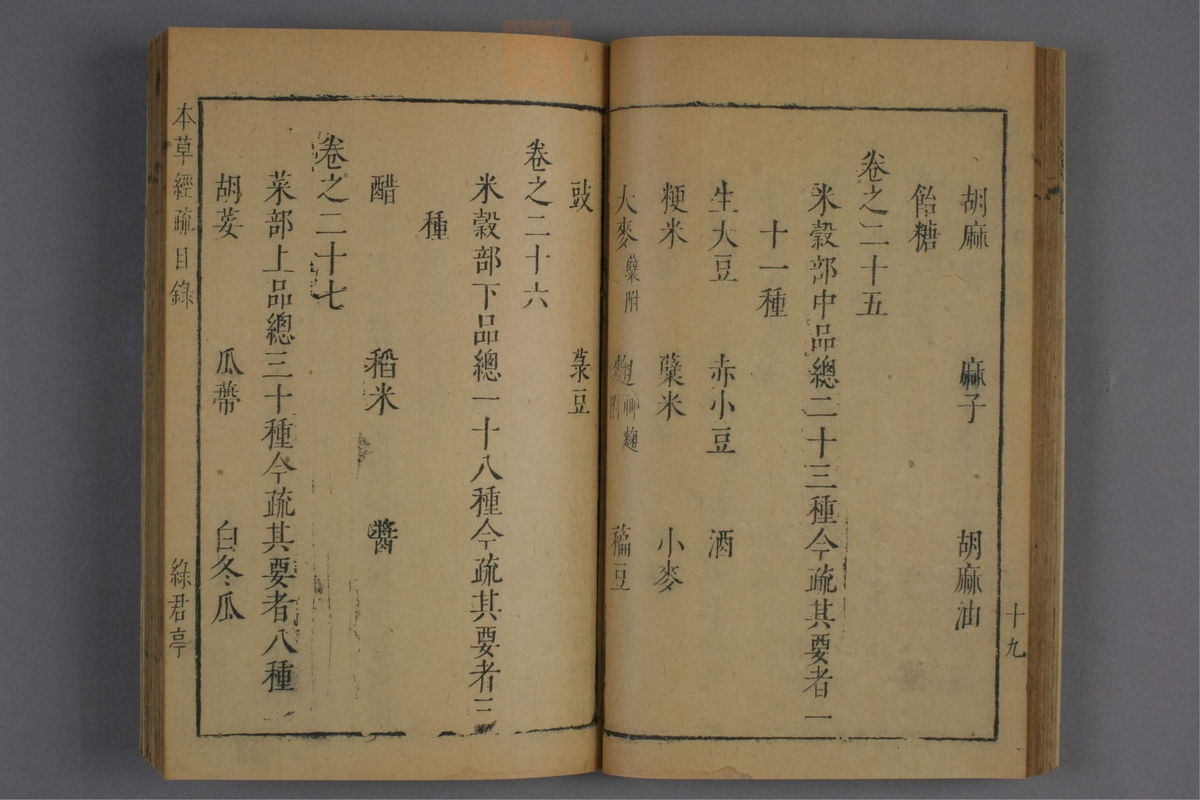 胡麻 麻子 胡麻油
飴糖
卷之二十五
米穀部中品總二十三種今疏其要者一
十一種
生大豆 赤小豆 酒
粳米 蘖米 小麥
大麥 蘖附 麴 神麴附 藊豆
十九
豉 菉豆
卷之二十六
米穀部下品總一十八種今疏其要者三
種
醋 稻米 醬
卷之二十七
菜部上品總三十種今疏其要者八種
胡荽 瓜蔕 白冬瓜
本草經疏目錄 綠君亭